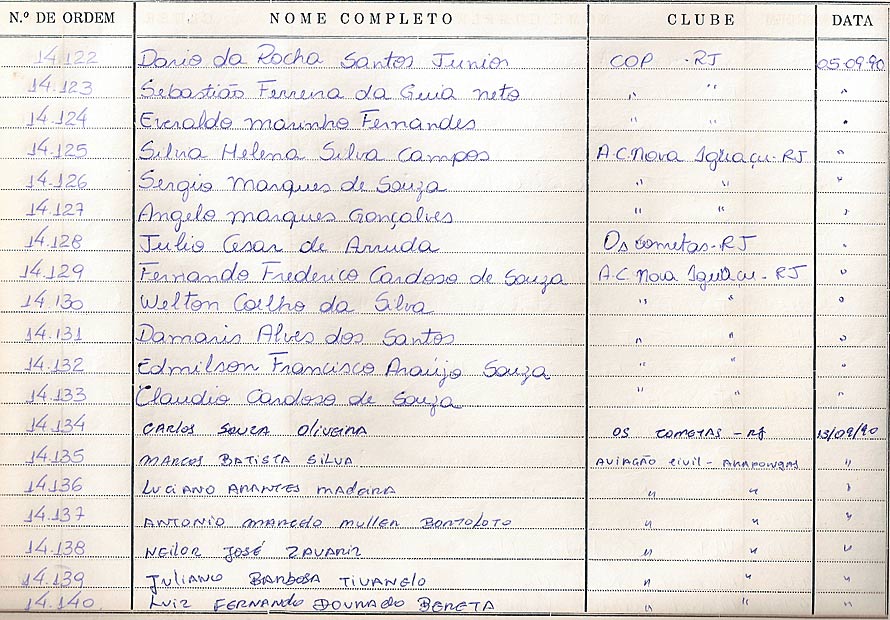 N.º DE ORDEM NOME COMPLETO CLUBE DATA
14.122 Dario da Rocha Santos Junior COP - RJ 05.09.90
14.123 Sebastião Ferreira da Guia neto " " "
14.124 Everaldo marinho Fernandes " " "
14.125 Silvia Helena Silva Campos A.C. Nova Iguaçu - RJ "
14.126 Sergio Marques de Souza " " "
14.127 Angelo marques Gonçalves " " "
14.128 Julio Cesar de Arruda Os cometas - RJ "
14.129 Fernando Frederico Cardoso de Souza A.C. Nova Iguaçu - RJ "
14.130 Welton Coelho da Silva " " "
14.131 Damaris Alves dos Santos " " "
14.132 Edmilson Francisco Araújo Souza " " "
14.133 Claudio Cardoso de Souza " " "
14.134 CARLOS SOUZA OLIVEIRA OS COMETAS - RJ 13/09/90
14.135 MARCOS BATISTA SILVA AVIAÇÃO CIVIL - ARAPONGAS "
14.136 LUCIANO ARANTES MADEIRA " " "
14.137 ANTONIO MARCELO MULLER BORTOLOTO " " "
14.138 NEILOR JOSÉ " " "
14.139 JULIANO BARBOSA TIVANELO " " "
14.140. LUIZ FERNANDO DOURADO BERETA " "